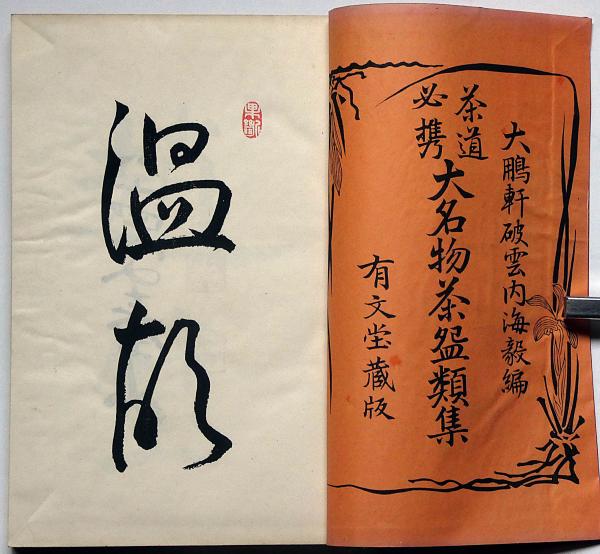 大鵬軒破雲内海毅編
茶道
必携
大名物茶盌類集
有文堂蔵版
温故